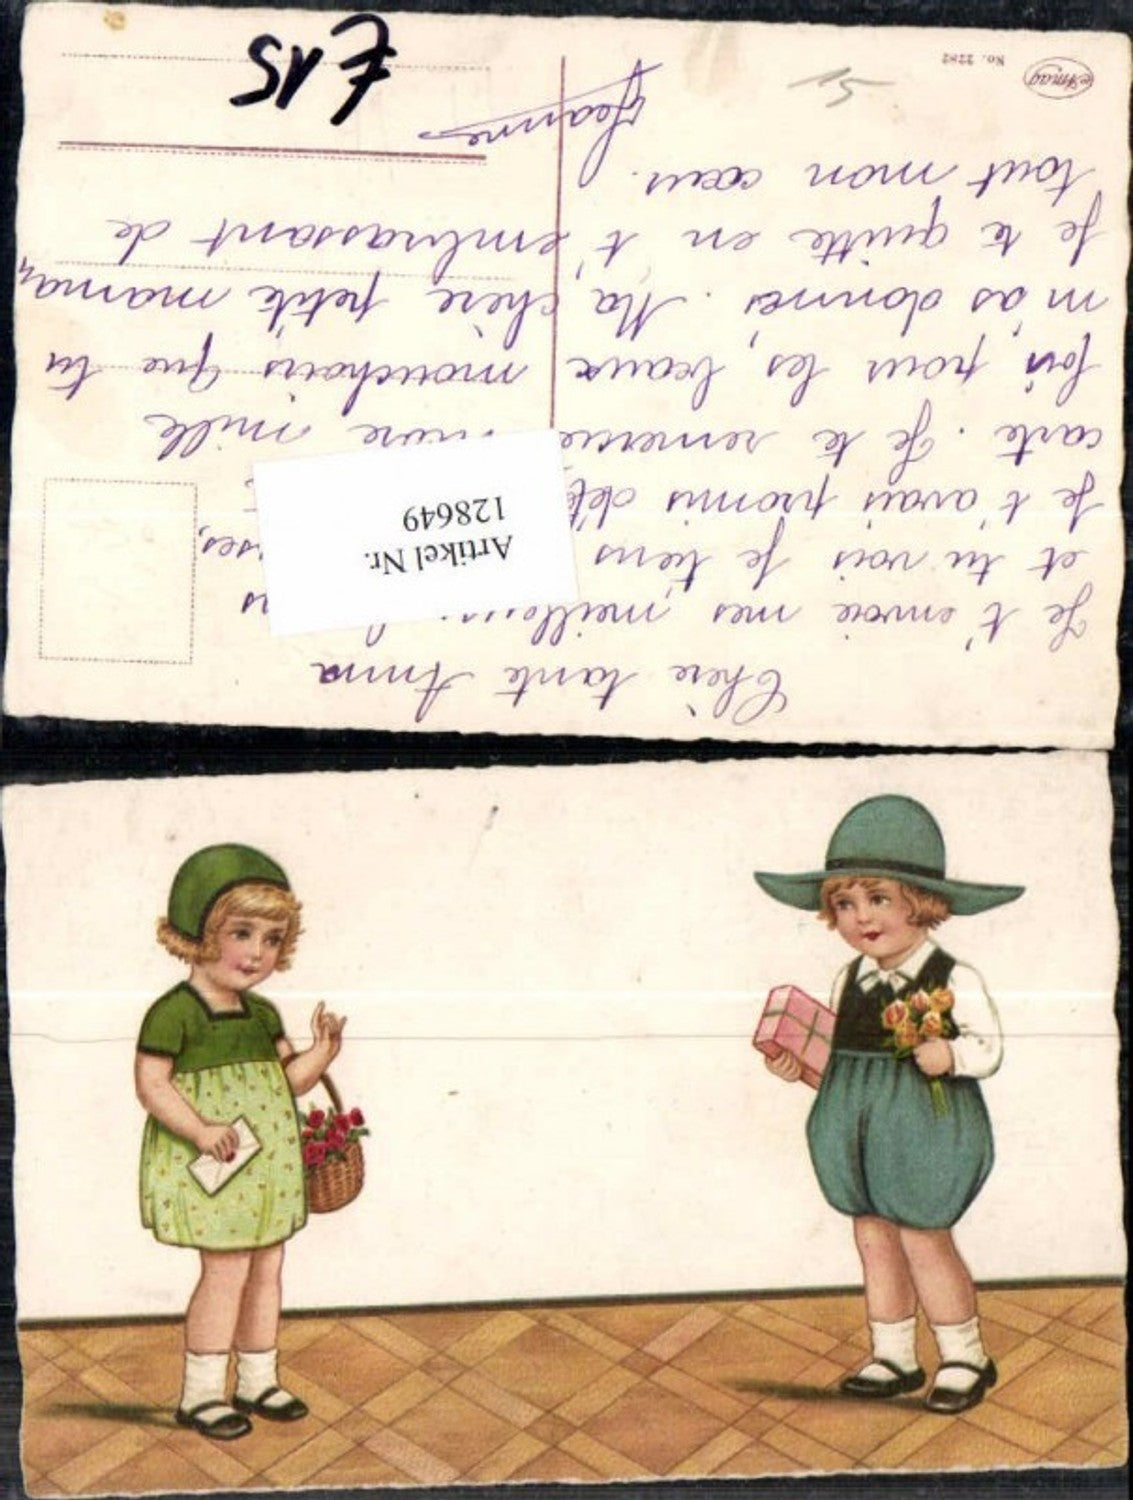 Chère tante Anna
Je t'envoie mes
et tu vois je tiens
Je t'avais promis
carte. Je te remercie mille
fois pour les beaux mouchoirs que tu
m'as donnés. Ma chère petite maman,
Je te quitte en t'embrassant de
tout mon cœur.
Jeanne
Artikel Nr.
128649
Amag
No. 2282